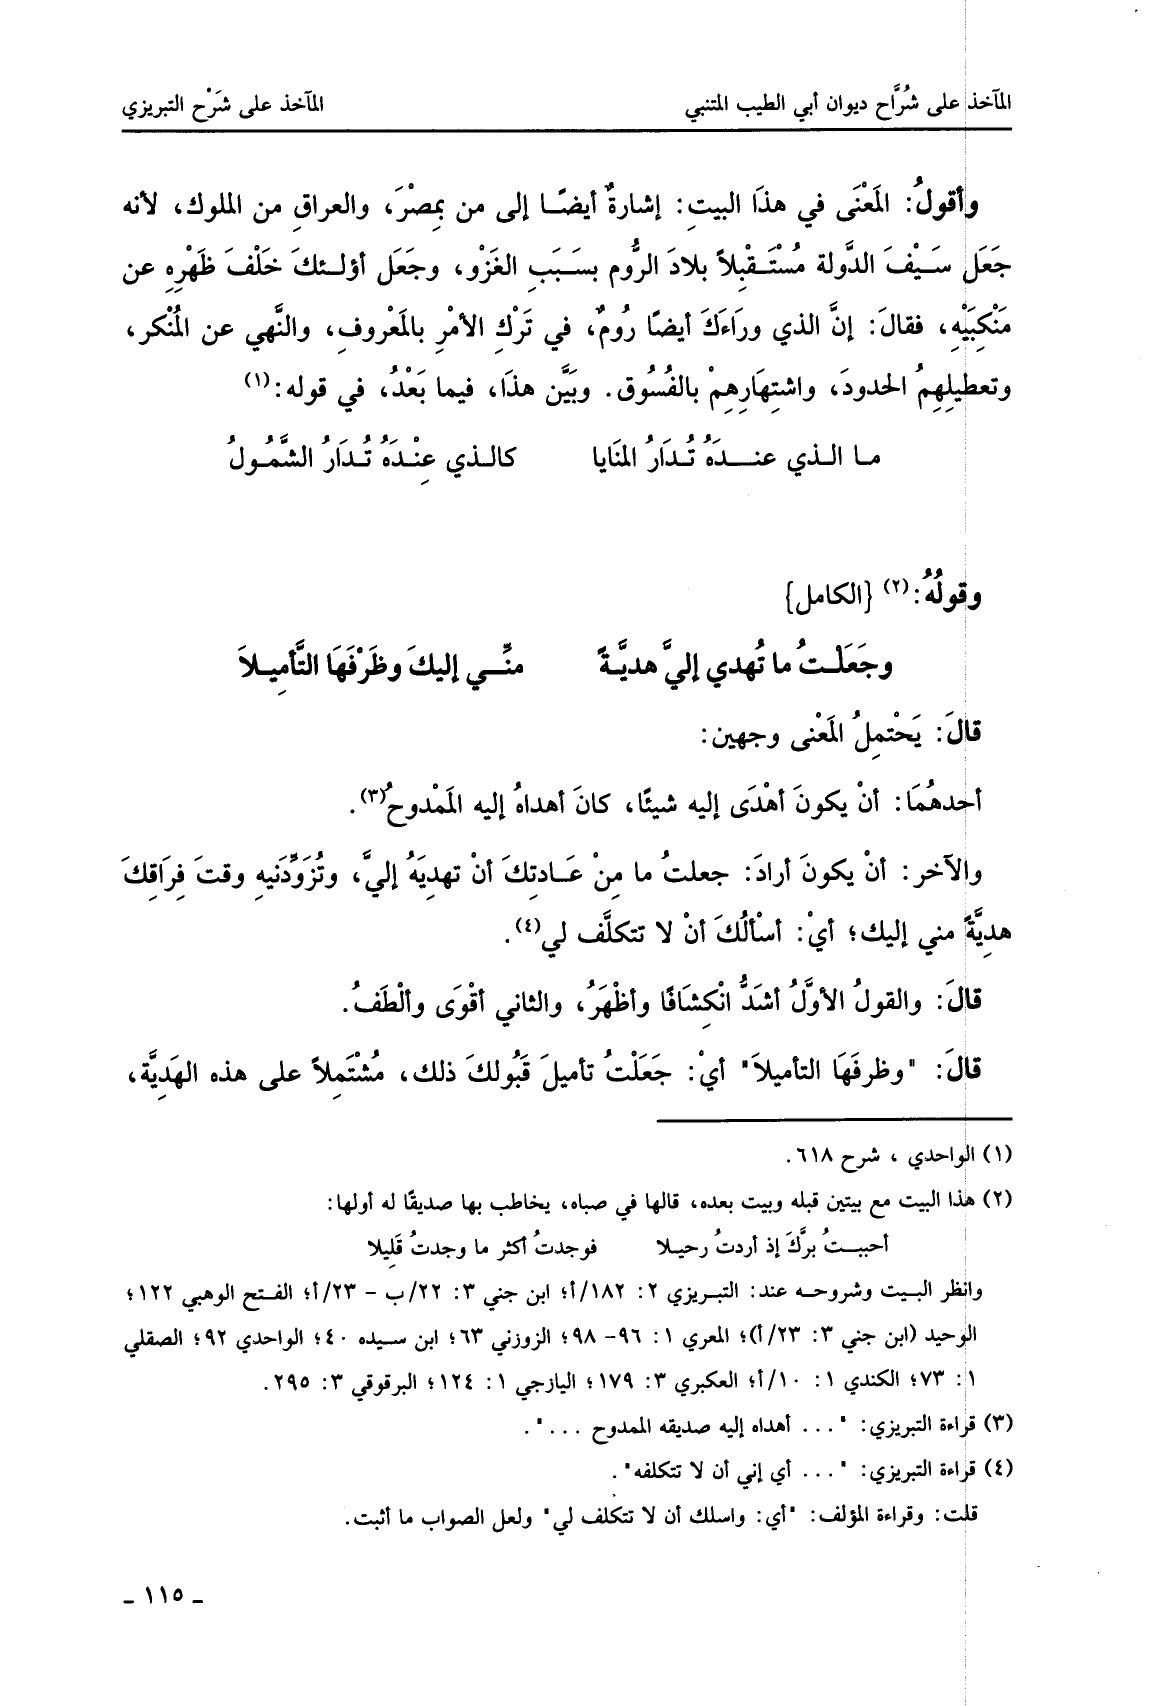 المآخذ على شُرَّاح ديوان أبي الطيب المتنبي المآخذ على شَرْح التبريزي
وأقولُ: المَعْنَى في هذَا البيتِ: إشارةٌ أيضًا إلى من بِمصْرَ، والعراقِ من الملوك، لأنه
جَعَل سَيْفَ الدَّولة مُسْتَقْبِلاً بلادَ الرُّوم بسَبَبِ الغَزْو، وجَعَل أوْلئكَ خَلْفَ ظَهْرِهِ عن
مَنْكِبَيْهِ، فقالَ: إنَّ الذي ورَاءَكَ أيضًا رُومٌ، في تَرْكِ الأمْرِ بالمَعْروفِ، والنَّهي عن المُنْكر،
وتعطيلِهِمُ الحدودَ، واشتِهَارِهِمْ بالفُسُوق. وبَيَّن هذَا، فيما بَعْدُ، في قوله:(١)
ما الذي عندَهُ تُدَارُ المنَايا كالذي عِنْدَهُ تُدَارُ الشَّمُولُ
وقولُهُ:(٢) {الكامل}
وجَعَلْتُ ما تُهدي إليَّ هديَّةً منِّي إليكَ وظَرْفَهَا التَّأمِيلاَ
قالَ: يَحْتمِلُ المَعْنى وجهين:
أحدهُمَا: أنْ يكونَ أهْدَى إليه شيئًا، كانَ أهداهُ إليه المَمْدوحُ(٣).
والآخر: أنْ يكونَ أرادَ: جعلتُ ما مِنْ عَادتِكَ أنْ تهدِيَهُ إليَّ، وتُزَوِّدَنيه وقتَ فِرَاقِكَ
هدِيَّةً مني إليك؛ أيْ: أسْألُكَ أنْ لا تتكلَّف لي(٤).
قالَ: والقولُ الأوَّلُ أشَدُّ انْكِشَافًا وأظْهَرُ، والثاني أقْوَى وألْطَفُ.
قالَ: "وظرفَهَا التأميلاَ" أيْ: جَعَلْتُ تأميلَ قَبُولكَ ذلك، مُشْتَمِلاً على هذه الهَدِيَّة،
(١) الواحدي ، شرح ٦١٨.
(٢) هذا البيت مع بيتين قبله وبيت بعده، قالها في صباه، يخاطب بها صديقًا له أولها:
أحببتُ برَّكَ إذ أردتُ رحيلا فوجدتُ أكثر ما وجدتُ قَلِيلا
وانظر البيت وشروحه عند: التبريزي ٢: ١٨٢/أ؛ ابن جني ٣: ٢٢/ب - ٢٣/أ؛ الفتح الوهبي ١٢٢؛
الوحيد (ابن جني ٣: ٢٣/أ)؛ المعري ١: ٩٦- ٩٨؛ الزوزني ٦٣؛ ابن سيده ٤٠؛ الواحدي ٩٢؛ الصقلي
١: ٧٣؛ الكندي ١: ١٠/أ؛ العكبري ٣: ١٧٩؛ اليازجي ١: ١٢٤؛ البرقوقي ٣: ٢٩٥.
(٣) قراءة التبريزي: "... أهداه إليه صديقه الممدوح ...".
(٤) قراءة التبريزي: "... أي إني أن لا تتكلفه".
قلت: وقراءة المؤلف: "أي: واسلك أن لا تتكلف لي" ولعل الصواب ما أثبت.
ـ ١١٥ ـ